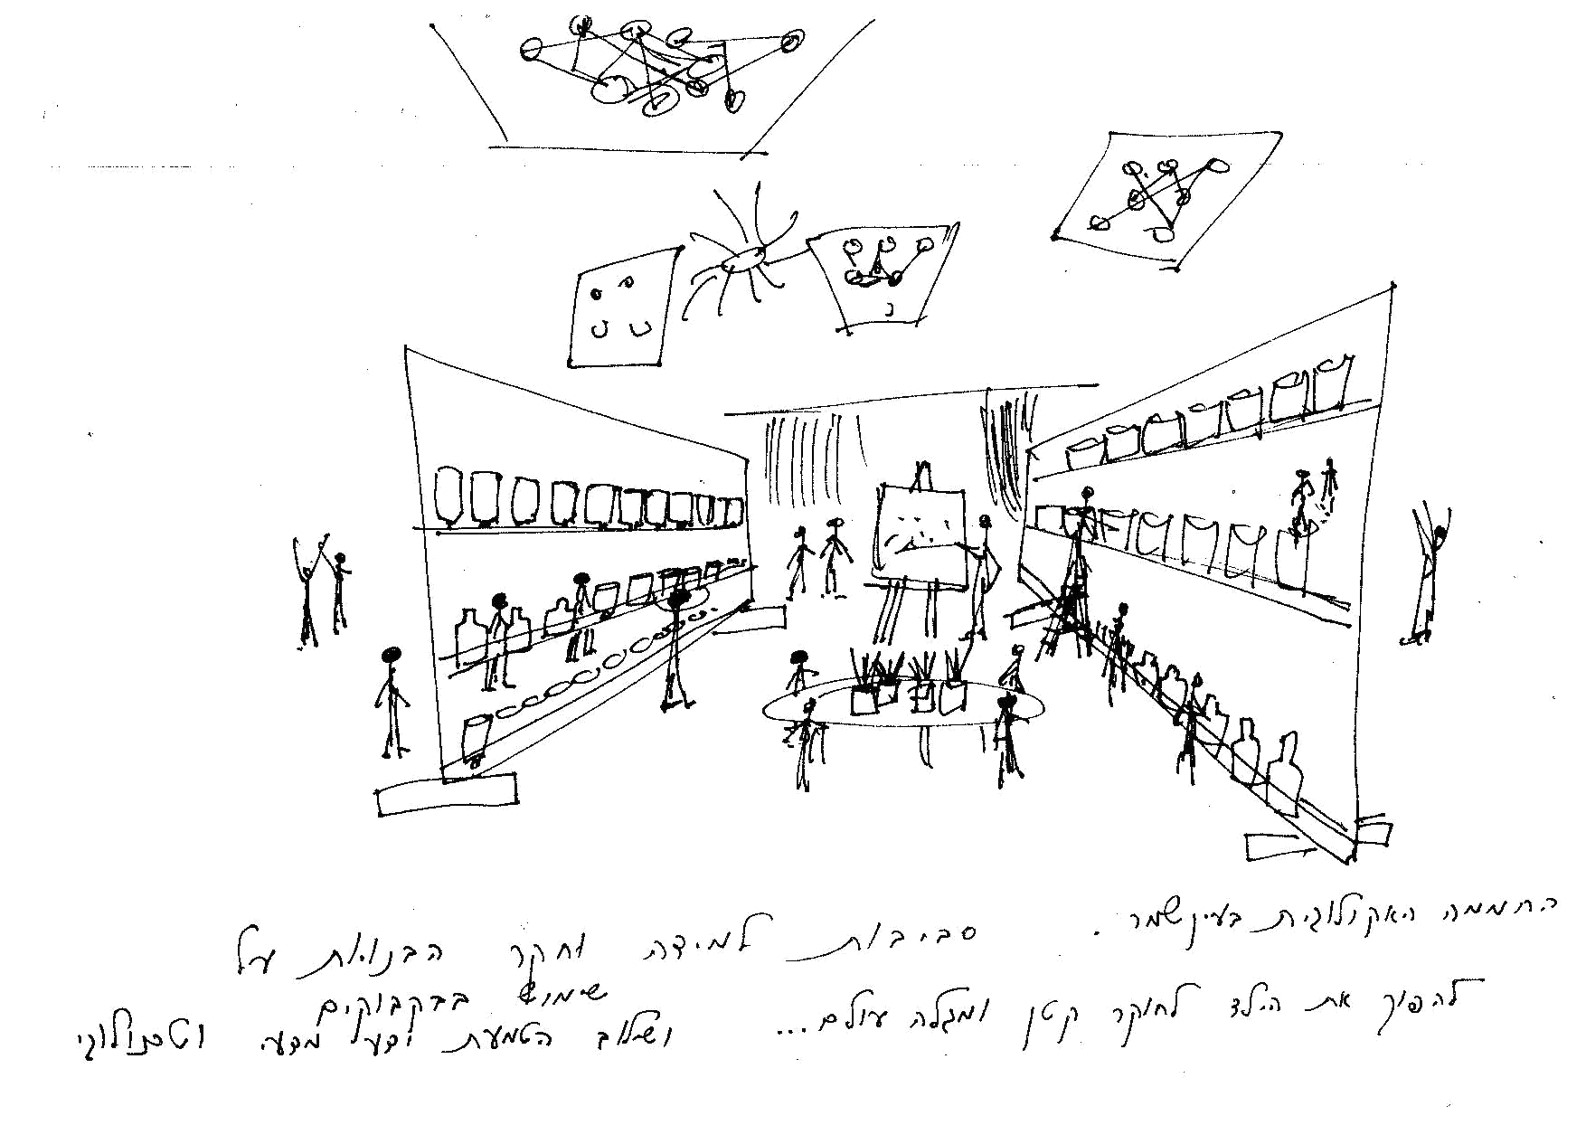 החממה האקולוגית בעין שמר. סביבות למידה וחקר הבנויות על
שימוש בבקבוקים
להפוך את הילד לחוקר קטן ומגלה עולם... ושילוב הטמעת ידע מדעי וטכנולוגי